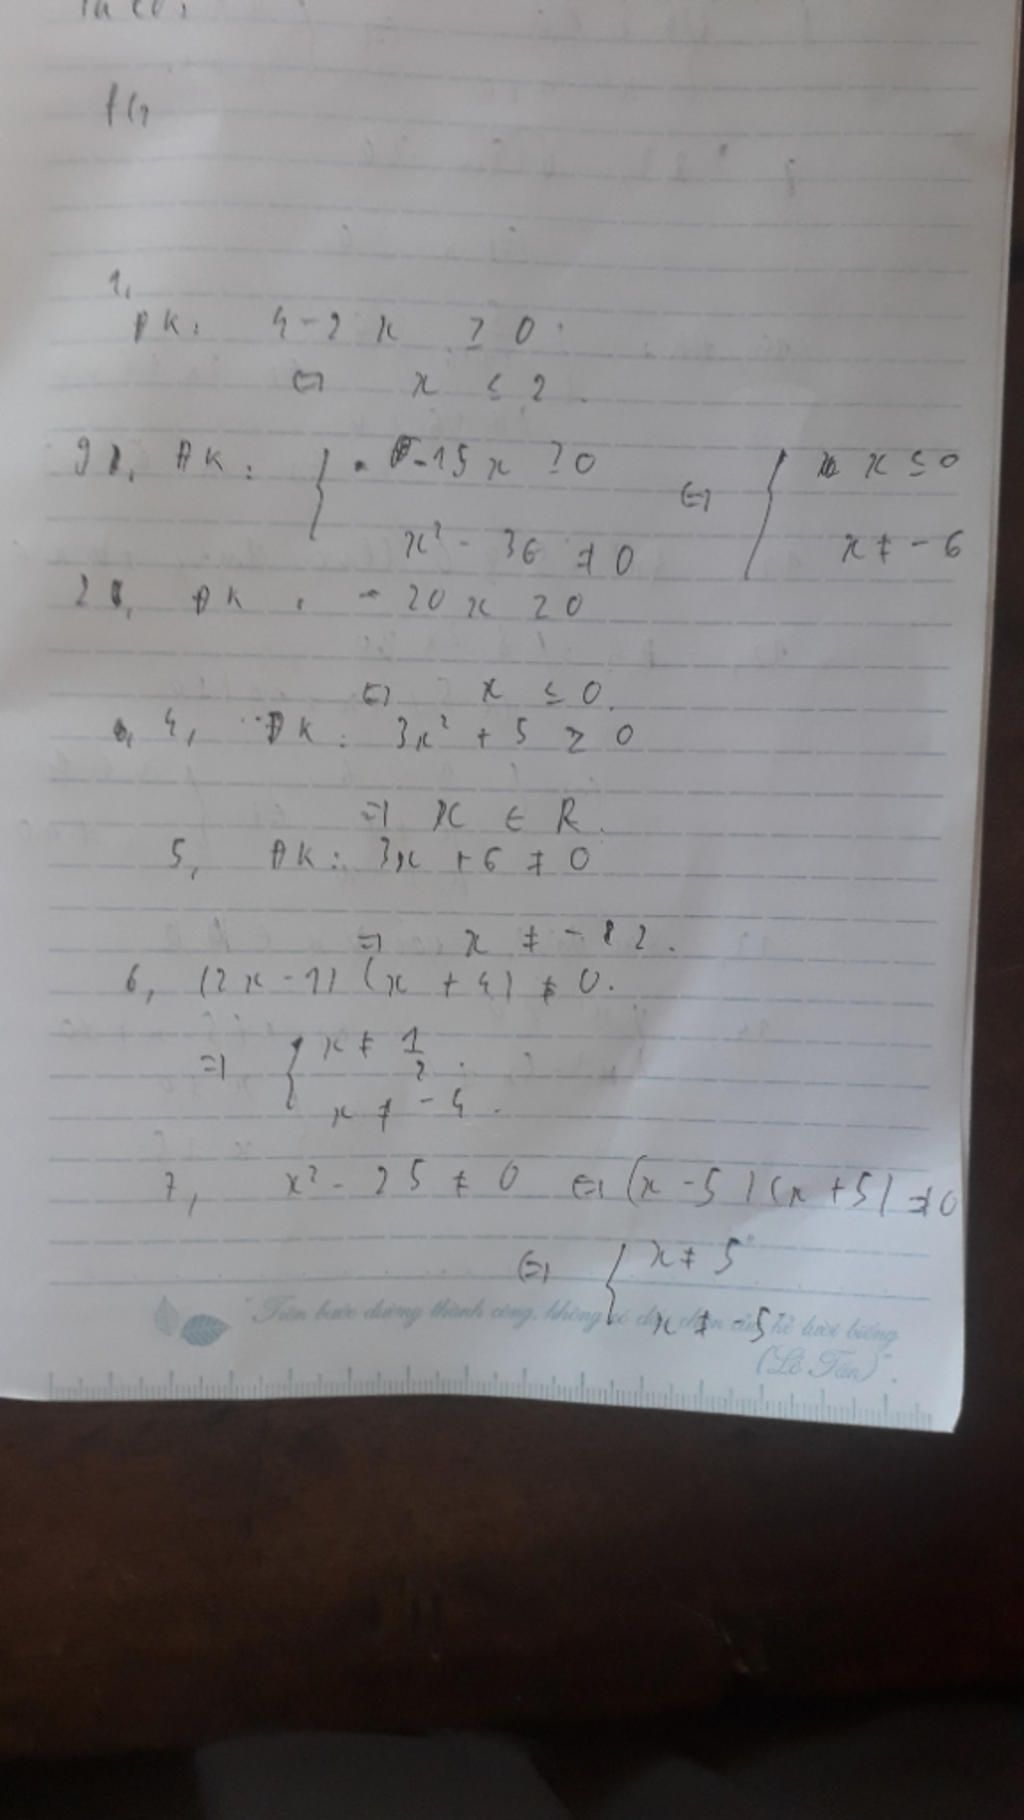 Ta có:
1,
ĐK: 4-2x ≥ 0
⇔ x ≤ 2.
9, ĐK: { -15x ≥ 0 ⇔ { x ≤ 0
x² - 36 ≠ 0 x ≠ -6
2, ĐK: -20x ≥ 0
⇔ x ≤ 0.
4, ĐK: 3x² + 5 ≥ 0
=> x ∈ R.
5, ĐK: 3x + 6 ≠ 0
=> x ≠ -2.
6, (2x-1)(x+4) ≠ 0.
=> { x ≠ 1/2.
x ≠ -4.
7, x² - 25 ≠ 0 ⇔ (x-5)(x+5) ≠ 0
⇔ { x ≠ 5
x ≠ -5
"Trên bước đường thành công, không có dấu chân của kẻ lười biếng
(Lỗ Tấn)".